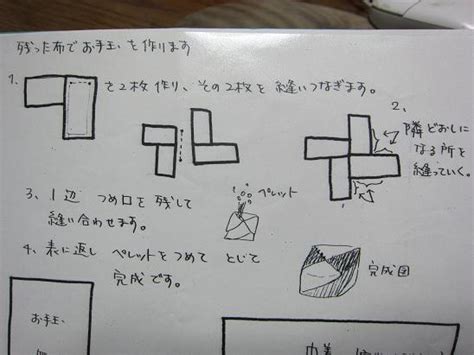 残った布でお手玉を作ります
1.
を2枚作り、その2枚を縫いつなぎます。
2、
隣どおしに
なる所を
縫っていく。
3、1辺 つめ口を残して
縫い合わせます。
ペレット
4、表に返し ペレットをつめて とじて
完成です。
完成図
お手玉
巾着